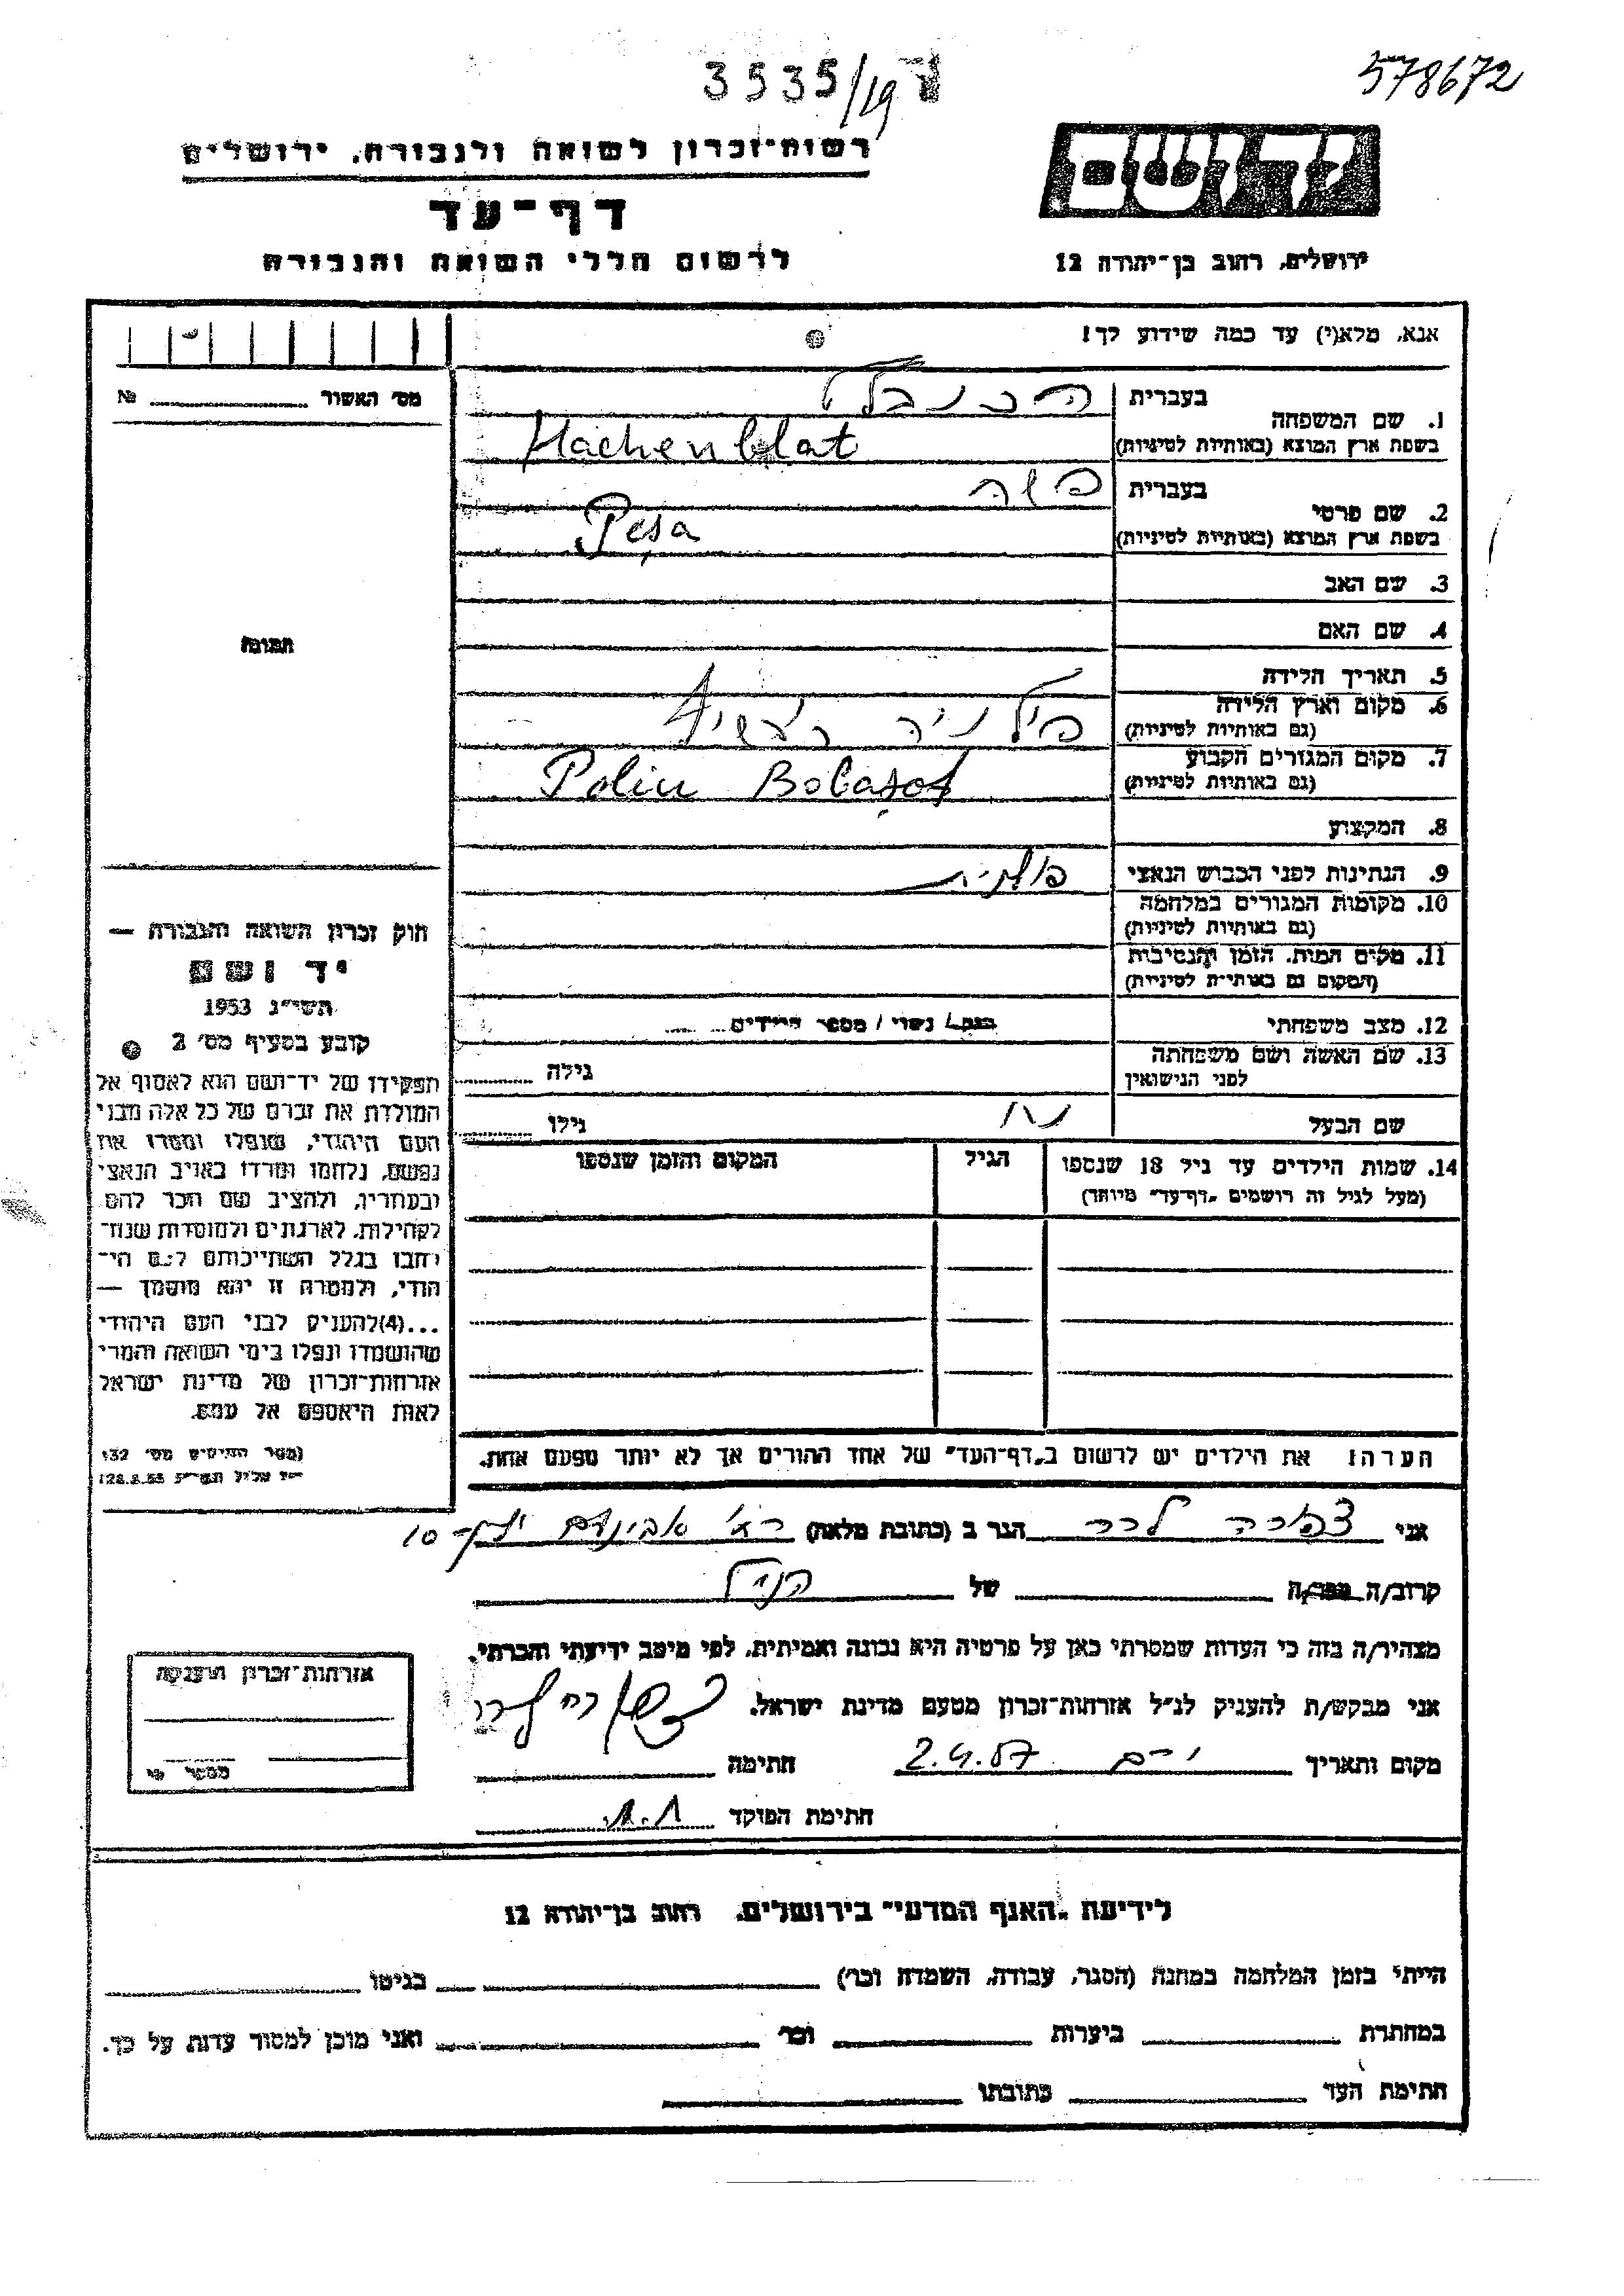 3535/19
578672
רשות־זכרון לשואה ולגבורה, ירושלים
יד ושם
דף־עד
לרשום חללי השואה והגבורה
ירושלים, רחוב בן־יהודה 12
אנא, מלא(י) עד כמה שידוע לך!
מס' האשור № 
1. שם המשפחה
בעברית
בשפת ארץ המוצא (באותיות לטיניות)
Hachenblat
2. שם פרטי
בעברית
בשפת ארץ המוצא (באותיות לטיניות)
Pesa
3. שם האב
4. שם האם
תמונה
5. תאריך הלידה
6. מקום וארץ הלידה
(גם באותיות לטיניות)
7. מקום המגורים הקבוע
(גם באותיות לטיניות)
Polin
8. המקצוע
9. הנתינות לפני הכבוש הנאצי פולנית
10. מקומות המגורים במלחמה
(גם באותיות לטיניות)
11. מקום המות, הזמן והנסיבות
(המקום גם באותיות לטיניות)
12. מצב משפחתי רווק / נשוי / מספר הילדים
13. שם האשה ושם משפחתה
לפני הנישואין
גילה
שם הבעל
גילו
14. שמות הילדים עד גיל 18 שנספו
(מעל לגיל זה רושמים "דף־עד" מיוחד)
הגיל
המקום והזמן שנספו
הערה: את הילדים יש לרשום ב"דף־העד" של אחד ההורים אך לא יותר מפעם אחת.
חוק זכרון השואה והגבורה —
יד ושם
תשי"ג 1953
קובע בסעיף מס' 2
תפקידו של יד־ושם הוא לאסוף אל
המולדת את זכרם של כל אלה מבני
העם היהודי, שנפלו ומסרו את
נפשם, נלחמו ומרדו באויב הנאצי
ובעוזריו, ולהציב שם וזכר להם
לקהילות, לארגונים ולמוסדות שנח־
רבו בגלל השתייכותם לעם הי־
הודי, ולמטרה זו יהא מוסמך —
...(4)להעניק לבני העם היהודי
שהושמדו ונפלו בימי השואה והמרי
אזרחות־זכרון של מדינת ישראל
לאות היאספם אל עמם.
(ספר החוקים מס' 132
אני הגר ב (כתובת מלאה)
קרוב/ה מכר/ה של הנ"ל
מצהיר/ה בזה כי העדות שמסרתי כאן על פרטיה היא נכונה ואמיתית, לפי מיטב ידיעתי והכרתי.
אני מבקש/ת להעניק לנ"ל אזרחות־זכרון מטעם מדינת ישראל.
מקום ותאריך 2.4.57 חתימה
חתימת הפוקד
אזרחות־זכרון הוענקה
מספר
לידיעת "האגף המדעי" בירושלים, רחוב בן־יהודה 12
הייתי בזמן המלחמה במחנה (הסגר, עבודה, השמדה וכו') בגיטו
במחתרת ביערות וכו' ואני מוכן למסור עדות על כך.
חתימת העד כתובתו